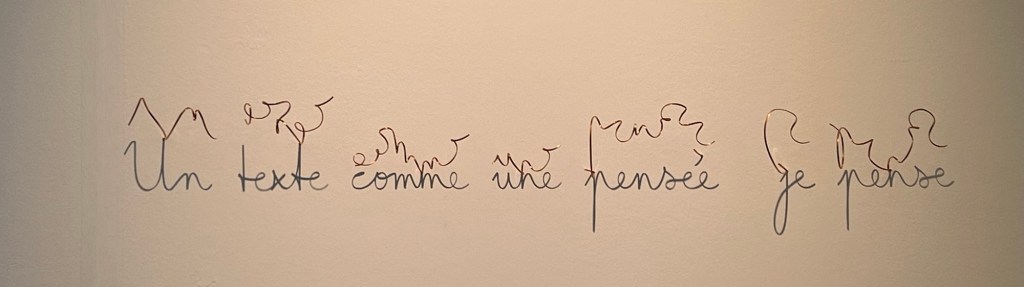 Un texte comme une pensée je pense